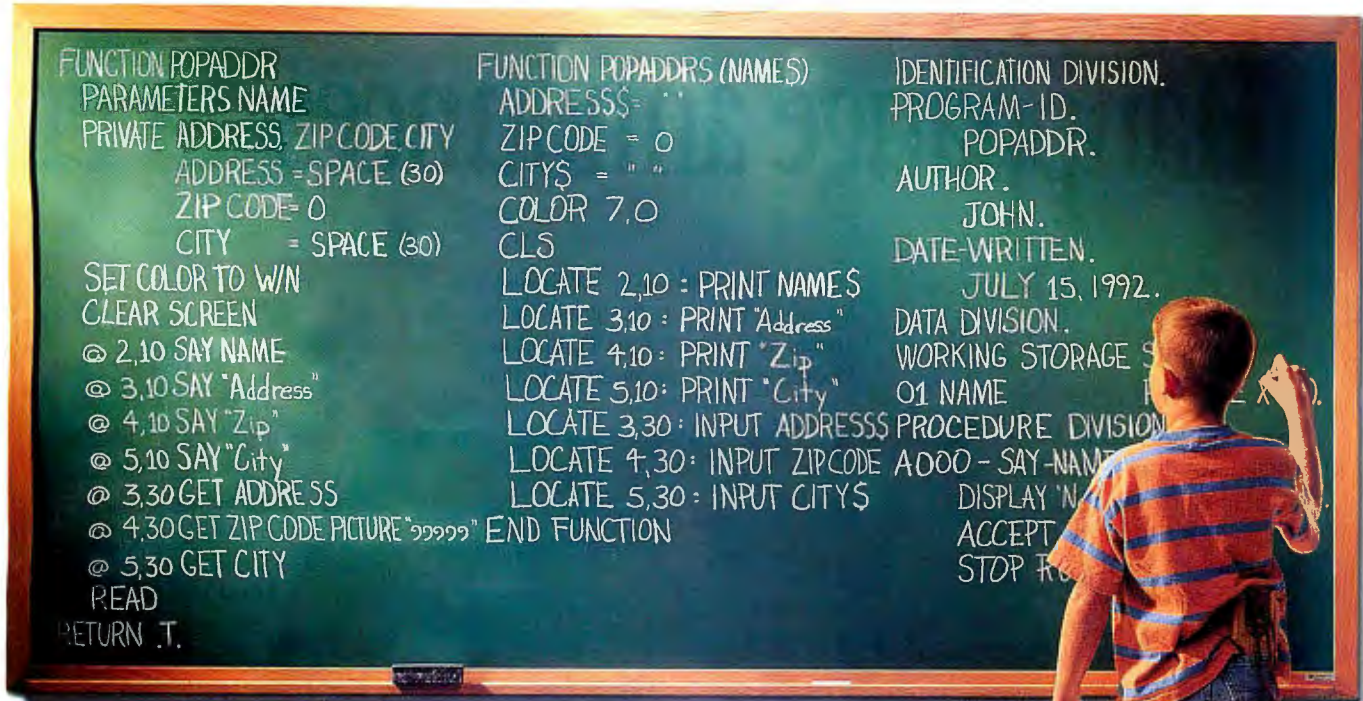 FUNCTION POPADDR
PARAMETERS NAME
PRIVATE ADDRESS, ZIPCODE, CITY
ADDRESS = SPACE (30)
ZIP CODE= 0
CITY = SPACE (30)
SET COLOR TO W/N
CLEAR SCREEN
@ 2,10 SAY NAME
@ 3,10 SAY "Address"
@ 4,10 SAY "Zip"
@ 5,10 SAY "City"
@ 3,30 GET ADDRESS
@ 4,30 GET ZIP CODE PICTURE "99999"
@ 5,30 GET CITY
READ
RETURN .T.
FUNCTION POPADDRS (NAME$)
ADDRESS$= " "
ZIPCODE = 0
CITY$ = " "
COLOR 7,0
CLS
LOCATE 2,10 : PRINT NAME$
LOCATE 3,10 : PRINT "Address"
LOCATE 4,10 : PRINT "Zip"
LOCATE 5,10 : PRINT "City"
LOCATE 3,30 : INPUT ADDRESS$
LOCATE 4,30 : INPUT ZIPCODE
LOCATE 5,30 : INPUT CITY$
END FUNCTION
IDENTIFICATION DIVISION.
PROGRAM-ID.
POPADDR.
AUTHOR.
JOHN.
DATE-WRITTEN.
JULY 15, 1992.
DATA DIVISION.
WORKING STORAGE
01 NAME
PROCEDURE DIVISION
A000-SAY-NAM
DISPLAY
ACCEPT
STOP